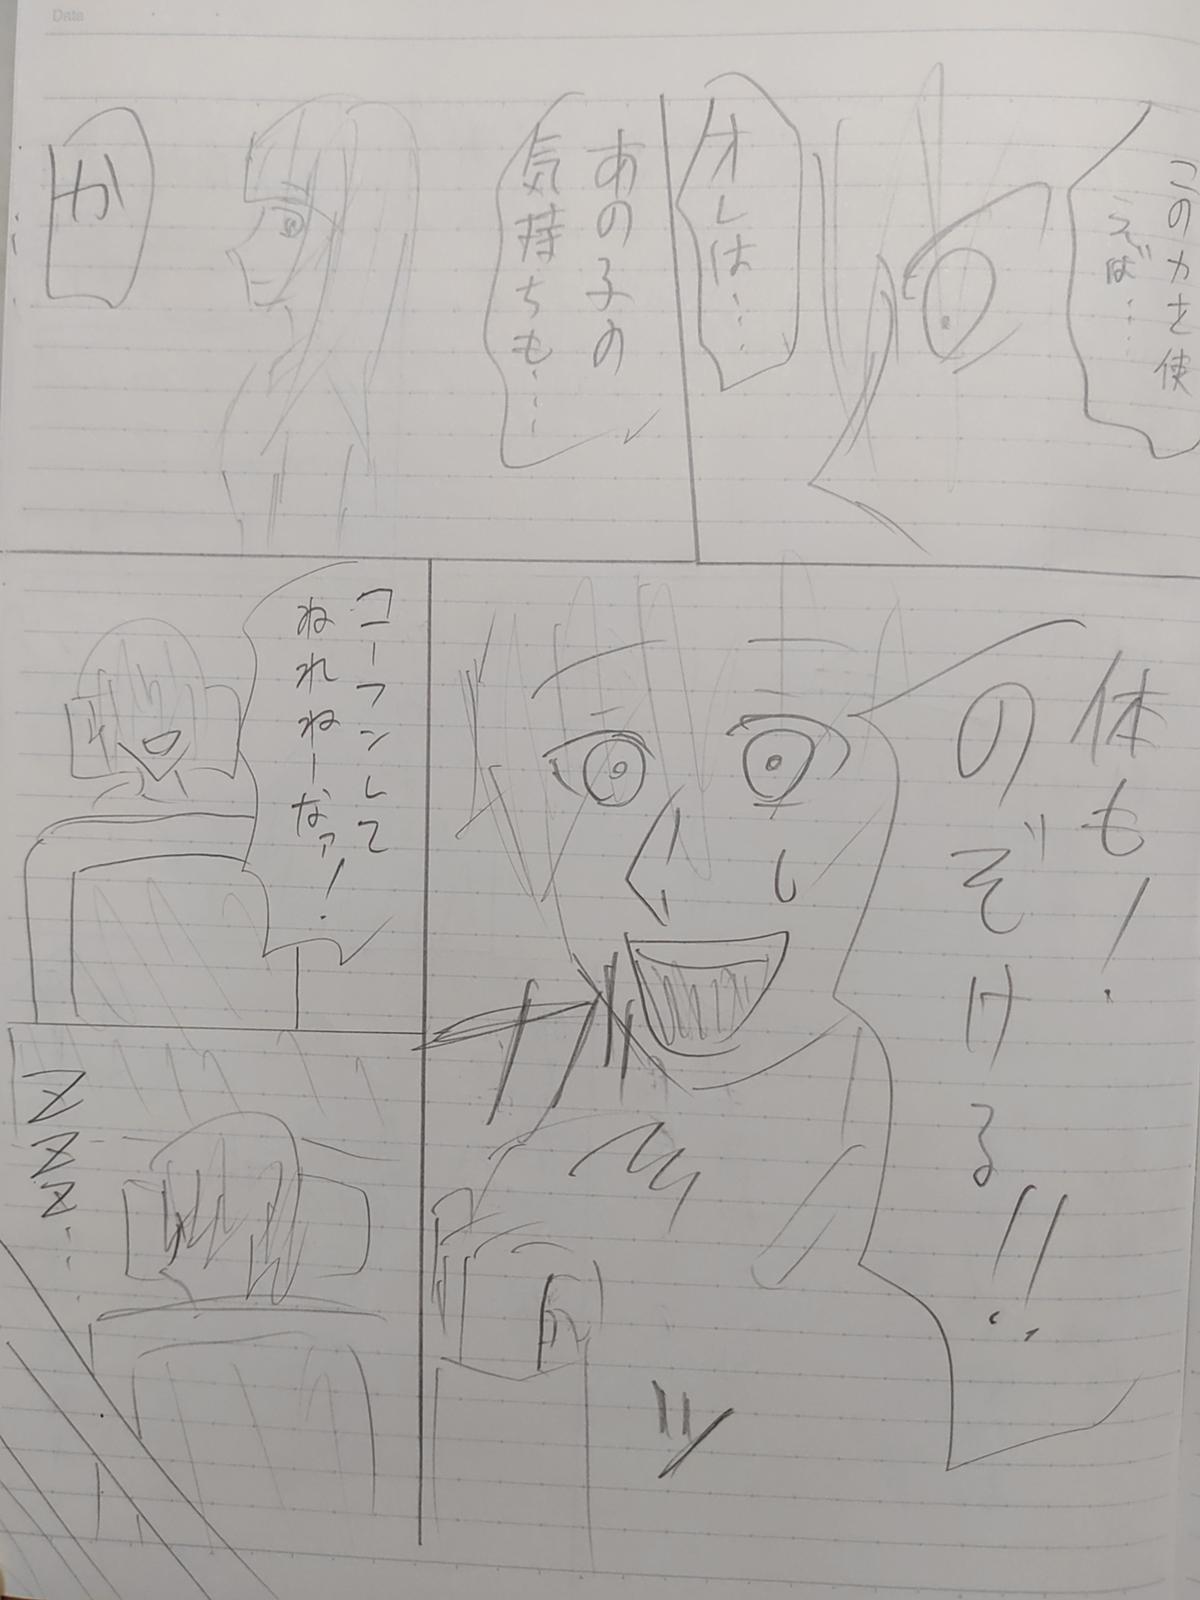 Date
この力を使
えば…
オレは…
あの子の
気持ちも…
か
体も!
のぞける!!
ガバッ
コーフンして
ねれねーなァ!
ZZZ…